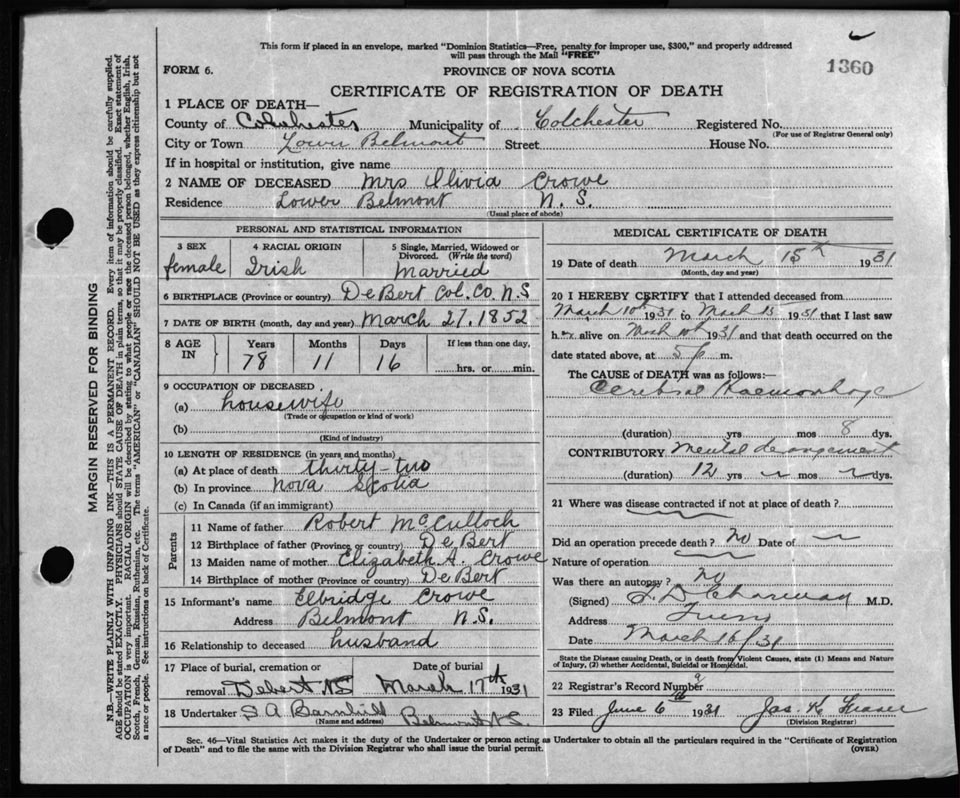 This form if placed in an envelope, marked "Dominion Statistics—Free, penalty for improper use, $300," and properly addressed
will pass through the Mail "FREE"
1360
FORM 6.
PROVINCE OF NOVA SCOTIA
CERTIFICATE OF REGISTRATION OF DEATH
1 PLACE OF DEATH—
County of Colchester Municipality of Colchester Registered No.
(For use of Registrar General only)
City or Town Lower Belmont Street House No.
If in hospital or institution, give name
2 NAME OF DECEASED Mrs Olivia Crowe
Residence Lower Belmont N. S.
(Usual place of abode)
PERSONAL AND STATISTICAL INFORMATION
3 SEX
female
4 RACIAL ORIGIN
Irish
5 Single, Married, Widowed or
Divorced. (Write the word)
Married
6 BIRTHPLACE (Province or country) DeBert Col. Co. N.S
7 DATE OF BIRTH (month, day and year) March 27, 1852
8 AGE IN
Years
78
Months
11
Days
16
If less than one day,
hrs. or min.
9 OCCUPATION OF DECEASED
(a) housewife
(Trade or occupation or kind of work)
(b)
(Kind of industry)
10 LENGTH OF RESIDENCE (in years and months)
(a) At place of death thirty-two
(b) In province Nova Scotia
(c) In Canada (if an immigrant)
Parents
11 Name of father Robert McCulloch
12 Birthplace of father (Province or country) DeBert
13 Maiden name of mother Elizabeth A. Crowe
14 Birthplace of mother (Province or country) DeBert
15 Informant's name Elbridge Crowe
Address Belmont N.S.
16 Relationship to deceased husband
17 Place of burial, cremation or
removal Debert NS
Date of burial
March 17th 1931
18 Undertaker S A Barnhill Belmont N.S.
(Name and address)
MEDICAL CERTIFICATE OF DEATH
19 Date of death March 15th 1931
(Month, day and year)
20 I HEREBY CERTIFY that I attended deceased from
March 10th 1931 to March 15 1931 that I last saw
her alive on March 10th 1931 and that death occurred on the
date stated above, at 5 p m.
The CAUSE of DEATH was as follows:
Cerebral Haemorrhage
(duration) yrs mos 8 dys.
CONTRIBUTORY Mental derangement
(duration) 12 yrs mos dys.
21 Where was disease contracted if not at place of death?
Did an operation precede death? No Date of
Nature of operation
Was there an autopsy? No
(Signed) M.D.
Address
Date March 16/31
State the Disease causing Death, or in death from Violent Causes, state (1) Means and Nature
of Injury, (2) whether Accidental, Suicidal or Homicidal.
22 Registrar's Record Number 9
23 Filed June 6th 1931 Jas. K Fraser
(Division Registrar)
Sec. 46—Vital Statistics Act makes it the duty of the Undertaker or person acting as Undertaker to obtain all the particulars required in the "Certificate of Registration
of Death" and to file the same with the Division Registrar who shall issue the burial permit.
(OVER)
MARGIN RESERVED FOR BINDING
N.B.—WRITE PLAINLY WITH UNFADING INK—THIS IS A PERMANENT RECORD. Every item of information should be carefully supplied.
AGE should be stated EXACTLY. PHYSICIANS should STATE CAUSE OF DEATH in plain terms, so that it may be properly classified. Exact statement of
OCCUPATION is very important. RACIAL ORIGIN will be described by stating to what people or race the deceased person belonged, whether English, Irish,
Scotch, French, German, Russian, Ruthenian, etc. The terms "AMERICAN" or "CANADIAN" SHOULD NOT BE USED as they express citizenship but not
a race or people. See instructions on back of Certificate.